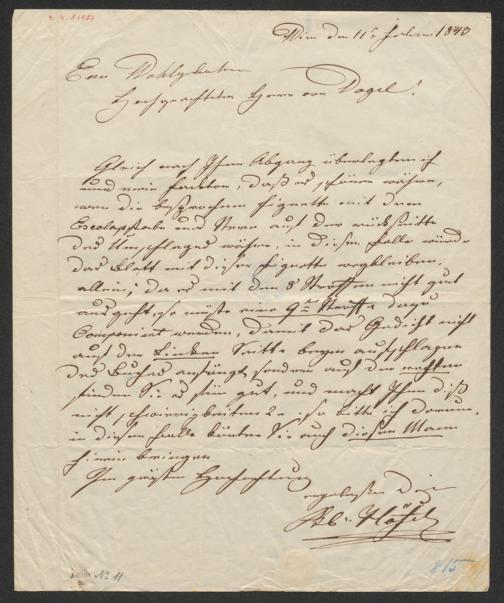 Wien den 11t Februar 1843
Euer Wohlgeboren
Hochgeachteter Herr von Vogel!
Gleich nach Ihrem Abgang überlegten ich
und mein Faktor, daß es schöner währe,
wenn die besprochene Vignette mit dem
Escolapstabe und Stern auf der rückseitte
des Umschlages währe, in diesem falle würde
das Blatt mit dieser Vignette wegbleiben,
allein, da es mit den 8 Stroffen nicht gut
ausgeht, so müßte eine 9te Stroffe dazu
Componiert werden, damit das Gedicht nicht
auf der Linken Seitte beym aufschlagen
des Buches anfängt, sondern auf der rechten
finden Sie es für gut, und macht Ihnen diß
nicht schwierigkeiten, so bitte ich darum,
in diesem falle könten Sie auch diesen Mann
hinein bringen
Im größter Hochachtung
ergebenster Dr
No 11
815